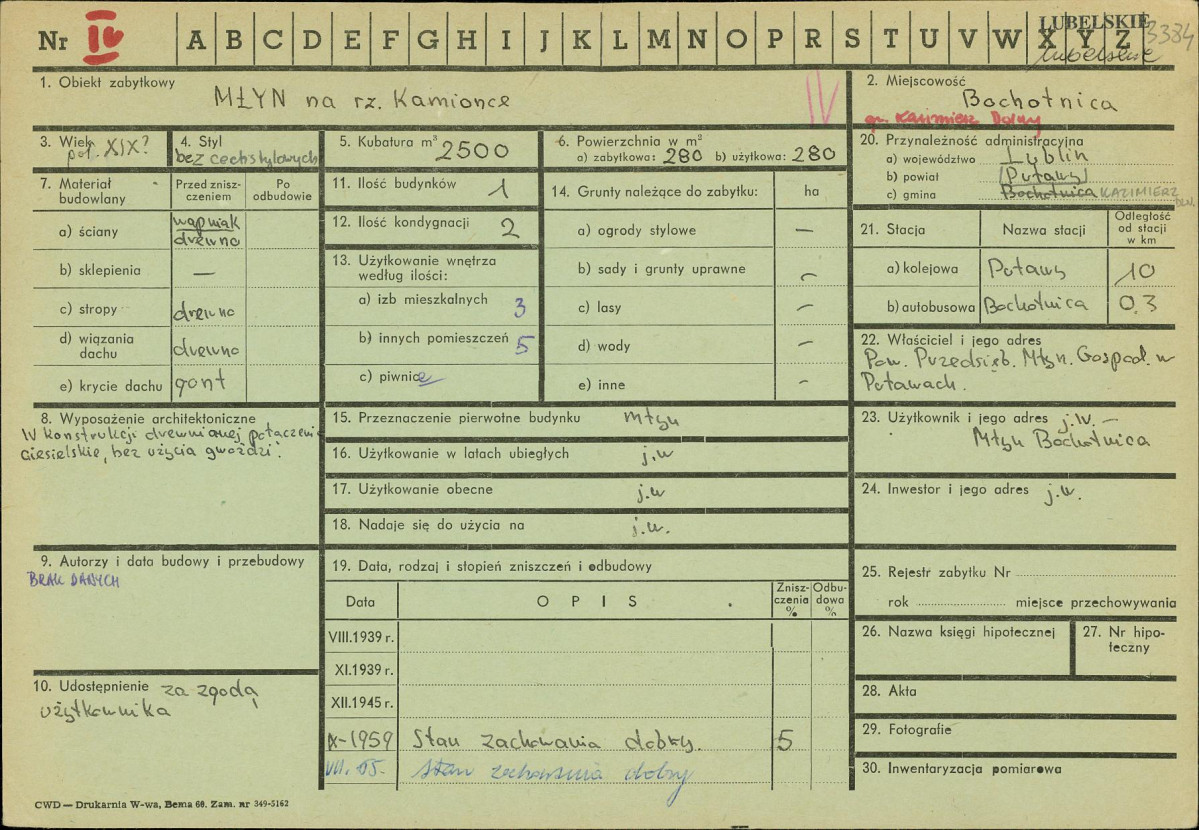 Nr IV A B C D E F G H I J K L M N O P R S T U V W X Y Z LUBELSKIE 3384
lubelskie
1. Obiekt zabytkowy
MŁYN na rz. Kamionce
IV
2. Miejscowość
Bochotnica
gm. Kazimierz Dolny
3. Wiek
poł. XIX?
4. Styl
bez cech stylowych
5. Kubatura m³ 2500
6. Powierzchnia w m²
a) zabytkowa: 280 b) użytkowa: 280
20. Przynależność administracyjna
a) województwo Lublin
b) powiat (Puławy)
c) gmina Bochotnica KAZIMIERZ
7. Materiał budowlany
Przed znisz-
czeniem
Po
odbudowie
a) ściany wapniak
drewno
b) sklepienia —
c) stropy drewno
d) wiązania
dachu drewno
e) krycie dachu gont
11. Ilość budynków 1
12. Ilość kondygnacji 2
13. Użytkowanie wnętrza
według ilości:
a) izb mieszkalnych 3
b) innych pomieszczeń 5
c) piwnic
14. Grunty należące do zabytku: ha
a) ogrody stylowe —
b) sady i grunty uprawne —
c) lasy —
d) wody —
e) inne -
21. Stacja Nazwa stacji Odległość
od stacji
w km
a) kolejowa Puławy 10
b) autobusowa Bochotnica 0,3
22. Właściciel i jego adres
Pow. Przedsięb. Młyn. Gospod. w
Puławach.
8. Wyposażenie architektoniczne
W konstrukcji drewnianej połączenia
ciesielskie, bez użycia gwoździ.
15. Przeznaczenie pierwotne budynku młyn
16. Użytkowanie w latach ubiegłych j.w
17. Użytkowanie obecne j.w
18. Nadaje się do użycia na j.w.
23. Użytkownik i jego adres j.w. —
Młyn Bochotnica
24. Inwestor i jego adres j.w.
9. Autorzy i data budowy i przebudowy
BRAK DANYCH
10. Udostępnienie za zgodą
użytkownika
19. Data, rodzaj i stopień zniszczeń i odbudowy
Data O P I S Znisz-
czenia
%
Odbu-
dowa
%
VIII.1939 r.
XI.1939 r.
XII.1945 r.
X-1959 Stan zachowania dobry. 5
VII. 65. stan zachowania dobry
25. Rejestr zabytku Nr
rok miejsce przechowywania
26. Nazwa księgi hipotecznej
27. Nr hipo-
teczny
28. Akta
29. Fotografie
30. Inwentaryzacja pomiarowa
CWD — Drukarnia W-wa, Bema 60. Zam. nr 349-5162